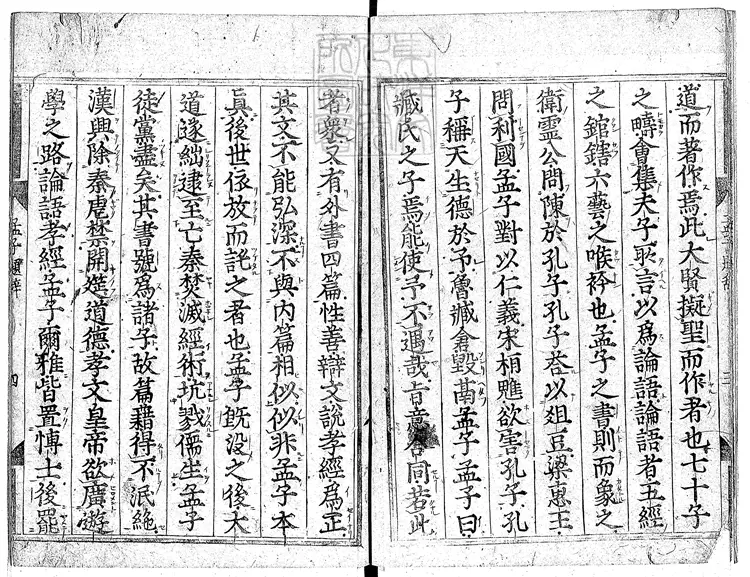 道而著作焉此大賢擬聖而作者也七十子
之疇會集夫子所言以爲論語論語者五經
之錧鎋六藝之喉衿也孟子之書則而象之
衛靈公問陳於孔子孔子荅以俎豆梁惠王
問利國孟子對以仁義宋桓魋欲害孔子孔
子稱天生德於予魯臧倉毀鬲孟子孟子曰
臧氏之子焉能使予不遇哉旨意合同若此
者衆又有外書四篇性善辯文說孝經爲正
其文不能弘深不與内篇相似似非孟子本
真後世依放而託之者也孟子旣没之後大
道遂絀逮至亡秦焚滅經術坑戮儒生孟子
徒黨盡矣其書號爲諸子故篇籍得不泯絶
漢興除秦虐禁開延道德孝文皇帝欲廣遊
學之路論語孝經孟子爾雅皆置博士後罷
孟子題辭
三
孟子題辭
四